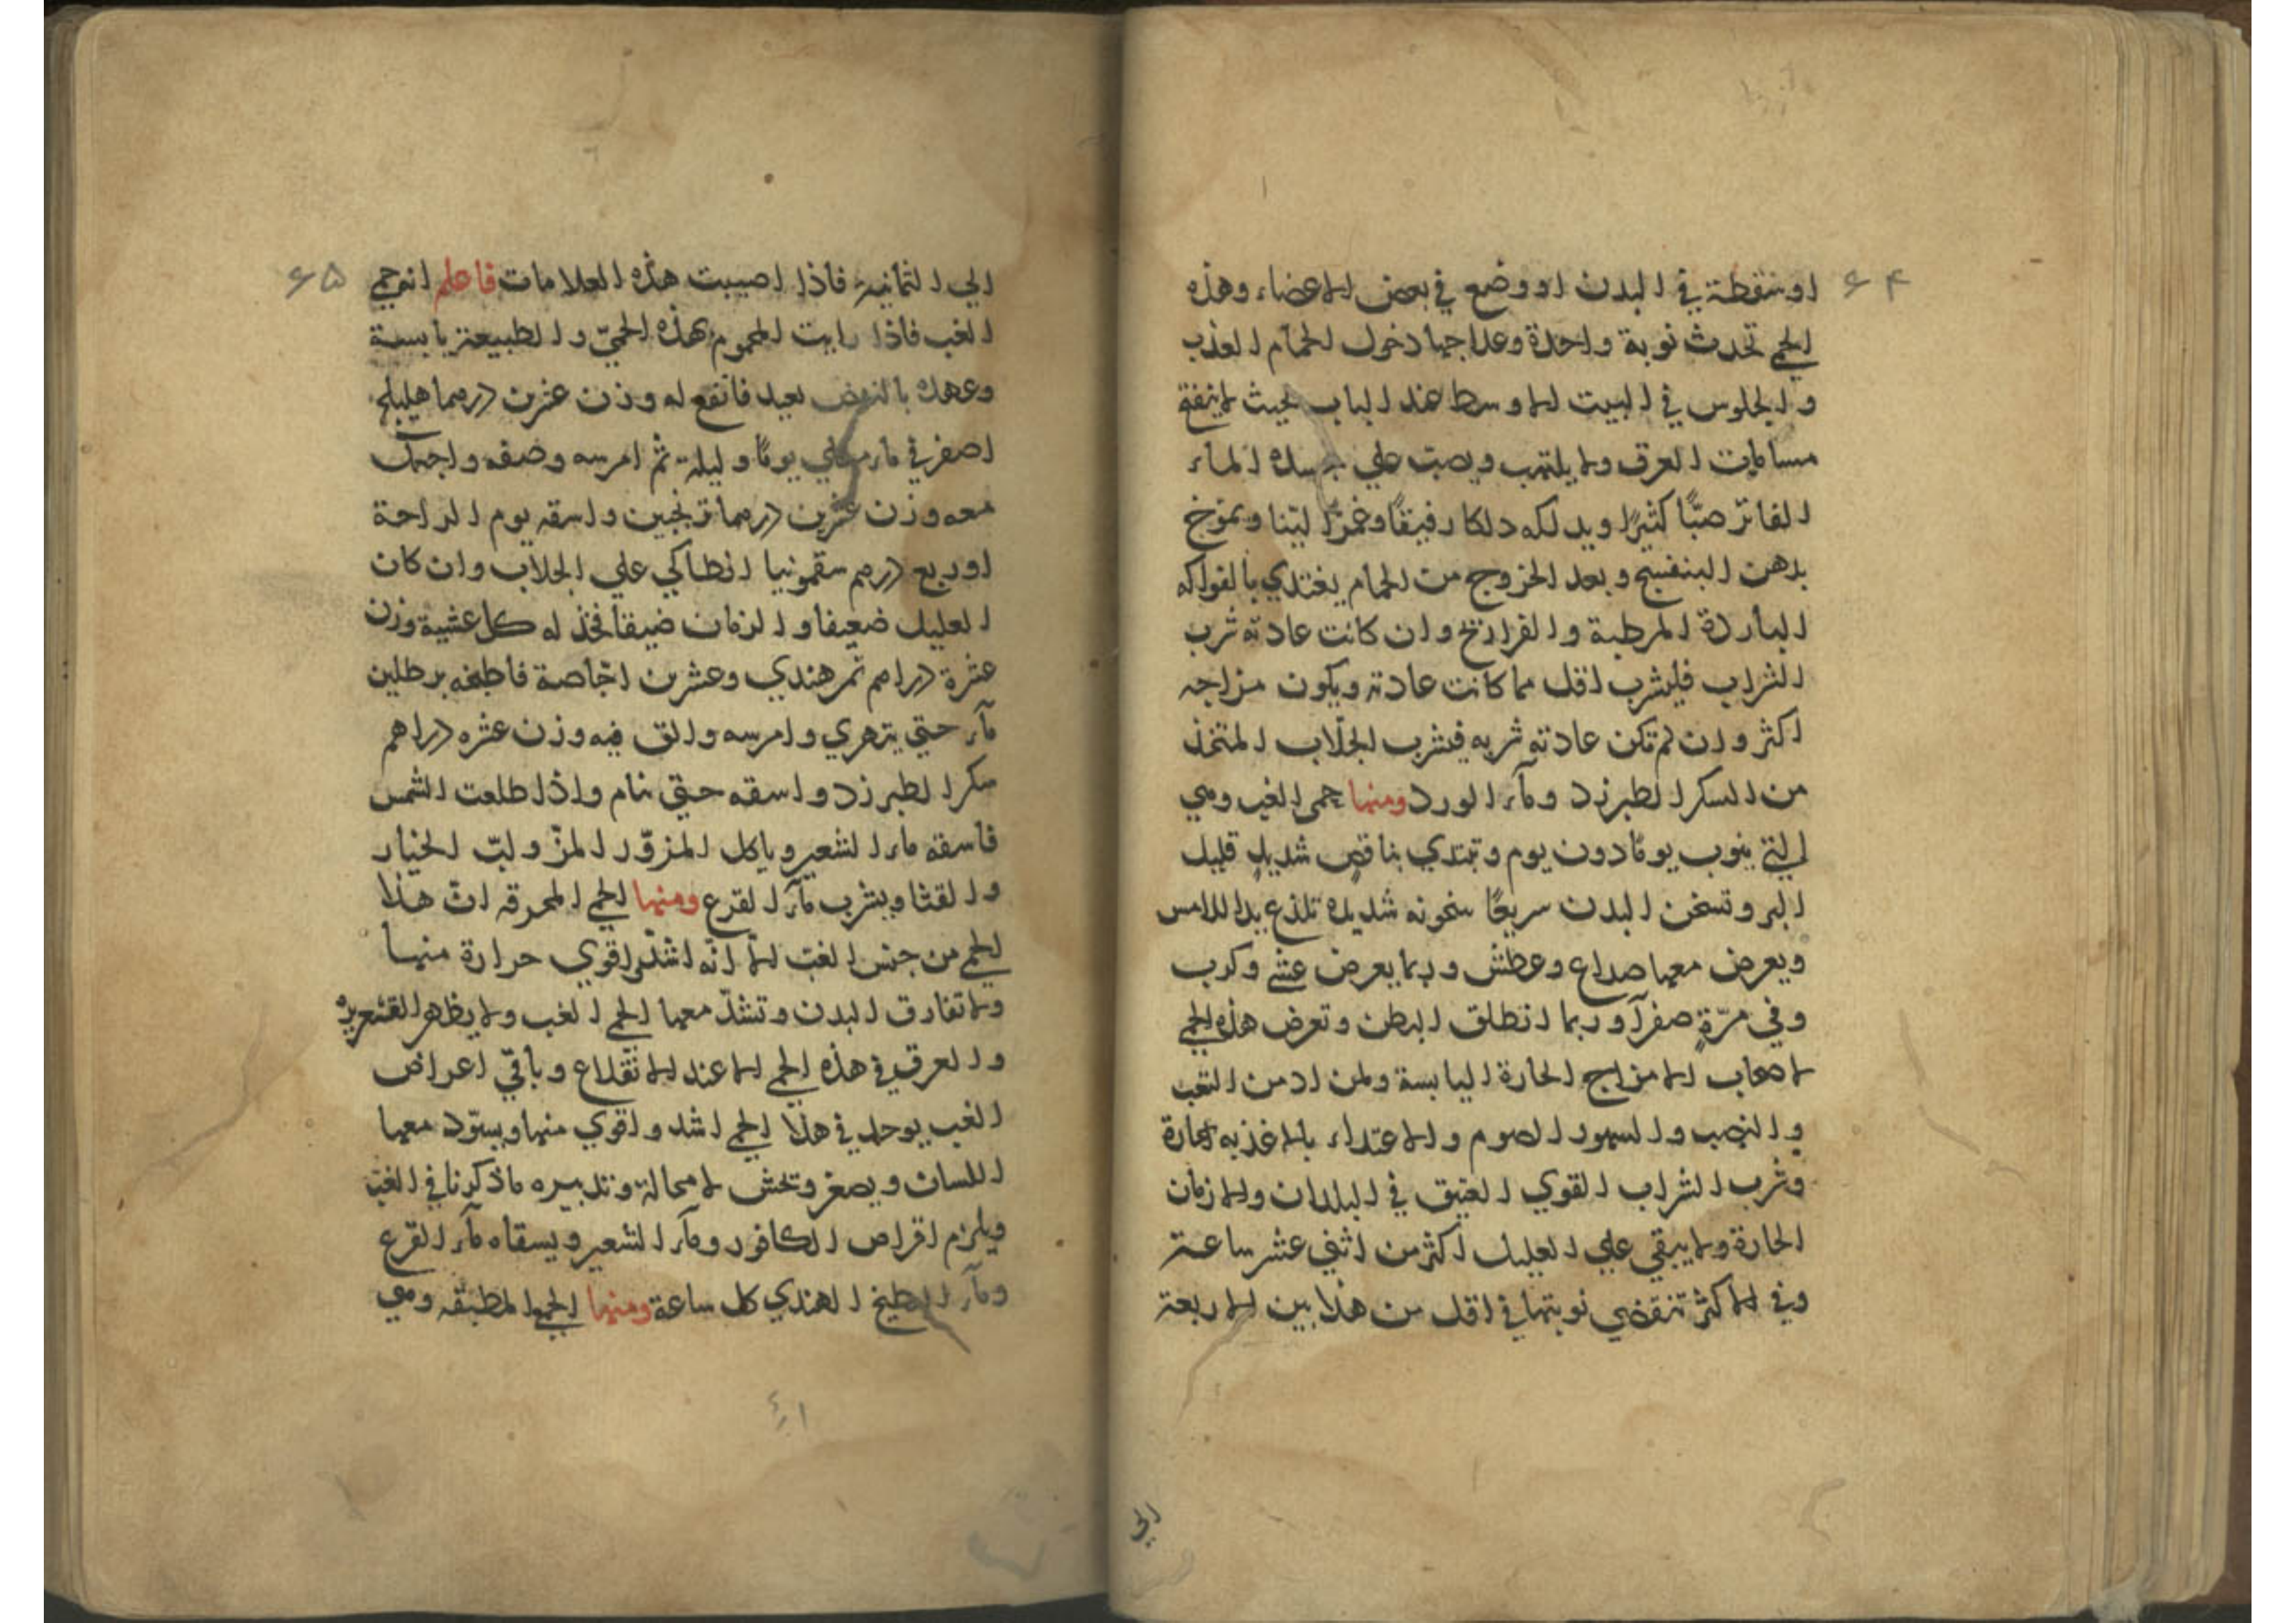 ۶۴
او شقطة في البدن او وضع في بعض الاعضاء وهذه
الحمي تحدث نوبة واحدة وعلاجها دخول الحمام العذب
والجلوس في البيت الاوسط عند الباب بحيث لا
مسامات العرق ولا يلتهب ويصب علي جسده الماء
الفاتر صبًّا كثيرًا ويدلكه دلكا رفيقًا وغمزًا لينا ويمرّخ
بدهن البنفسج وبعد الخروج من الحمام يغتدي بالفواكه
الباردة المرطبة والفراريخ وان كانت عادته شرب
الشراب فليشرب اقل مما كانت عادته ويكون مزاجه
اكثر وان لم تكن عادته شربه فيشرب الجلّاب المتخذ
من السكر الطبرزد ومآء الورد ومنها حمى الغب وهي
التي ينوب يومًا دون يوم وتبتدي بنافضٍ شديدٍ قليل
البر وتسخن البدن سريعًا سخونه شديده تلذع يد اللامس
ويعرض معها صداع وعطش وربما يعرض غشي وكرب
وفي مرّةٍ صفرآ وربما انطلق البطن وتعرض هذه الحمي
لاصحاب الامزاج الحارة اليابسة ولمن ادمن التعب
والنصب والسهر والصوم والاغتداء بالاغذيه الحارة
وشرب الشراب القوي العتيق في البلدان والازمان
الحارة ولا يبقي علي العليل اكثر من اثني عشر ساعة
وفي الاكثر تنقضي نوبتها في اقل من هذا بين الاربعة
الي
۶۵
الي الثمانية فاذا اصيبت هذه العلامات فاعلم انه حمي
الغب فاذا رايت المحموم بهذه الحميّ والطبيعة يابسة
وعهده بالنفض بعيد فانقع له وزن عشرين درهما هليلج
اصفر في ماء يومًا وليلة ثم امرسه وصفه واجعل
معه وزن عشرين درهما ترنجبين واسقه يوم الراحة
او ربع درهم سقمونيا انطاكي علي الجلاب وان كان
العليل ضعيفا والزمان ضيقا فخذ له كل عشية وزن
عشرة دراهم تمر هندي وعشرين اجّاصة فاطبخه برطلين
مآء حتي يتهري وامرسه والق فيه وزن عشره دراهم
سكر الطبرزد واسقه حتي نام واذا طلعت الشمس
فاسقه ماء الشعير وياكل المزوّر المزّ ولبّ الخيار
والقثا ويشرب مآء القرع ومنها الحمي المحرقه انّ هذا
الحمي من جنس الغب الّا انّه اشدّ واقوي حرارة منها
ولا تفارق البدن وتشدّ معها الحمي الغب ولا يظهر القشعريره
والعرق في هذه الحمي الا عند الانقلاع وباقي اعراض
الغب يوجد في هذا الحمي اشد واقوي منها ويسوّد معها
اللسان ويصفر وتخش لا محالة وتدبيره ما ذكرنا في الغب
ويلزم اقراص الكافور ومآء الشعير ويسقاه مآء القرع
ومآء البطيخ الهندي كل ساعة ومنها الحمي المطبقه وهي